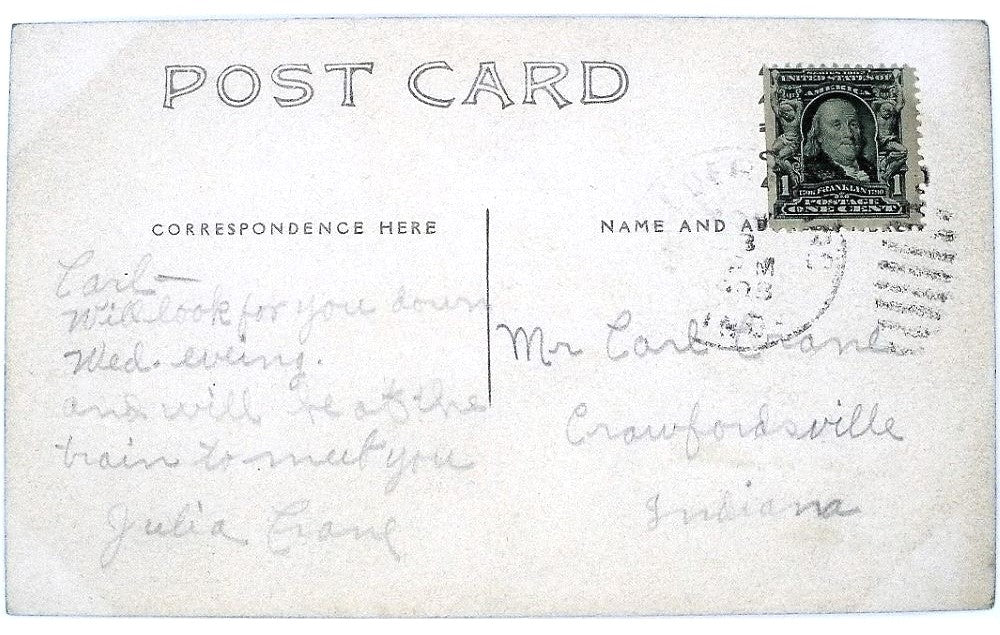 POST CARD
SERIES 1902
UNITED STATES OF
AMERICA
1 1706 FRANKLIN 1790 1
POSTAGE
ONE CENT
CORRESPONDENCE HERE
NAME AND
Carl—
Will look for you down
Wed. eveing.
and will be at the
train to meet you
Julia Crane
3
PM
IND.
Mr Carl Crane
Crawfordsville
Indiana